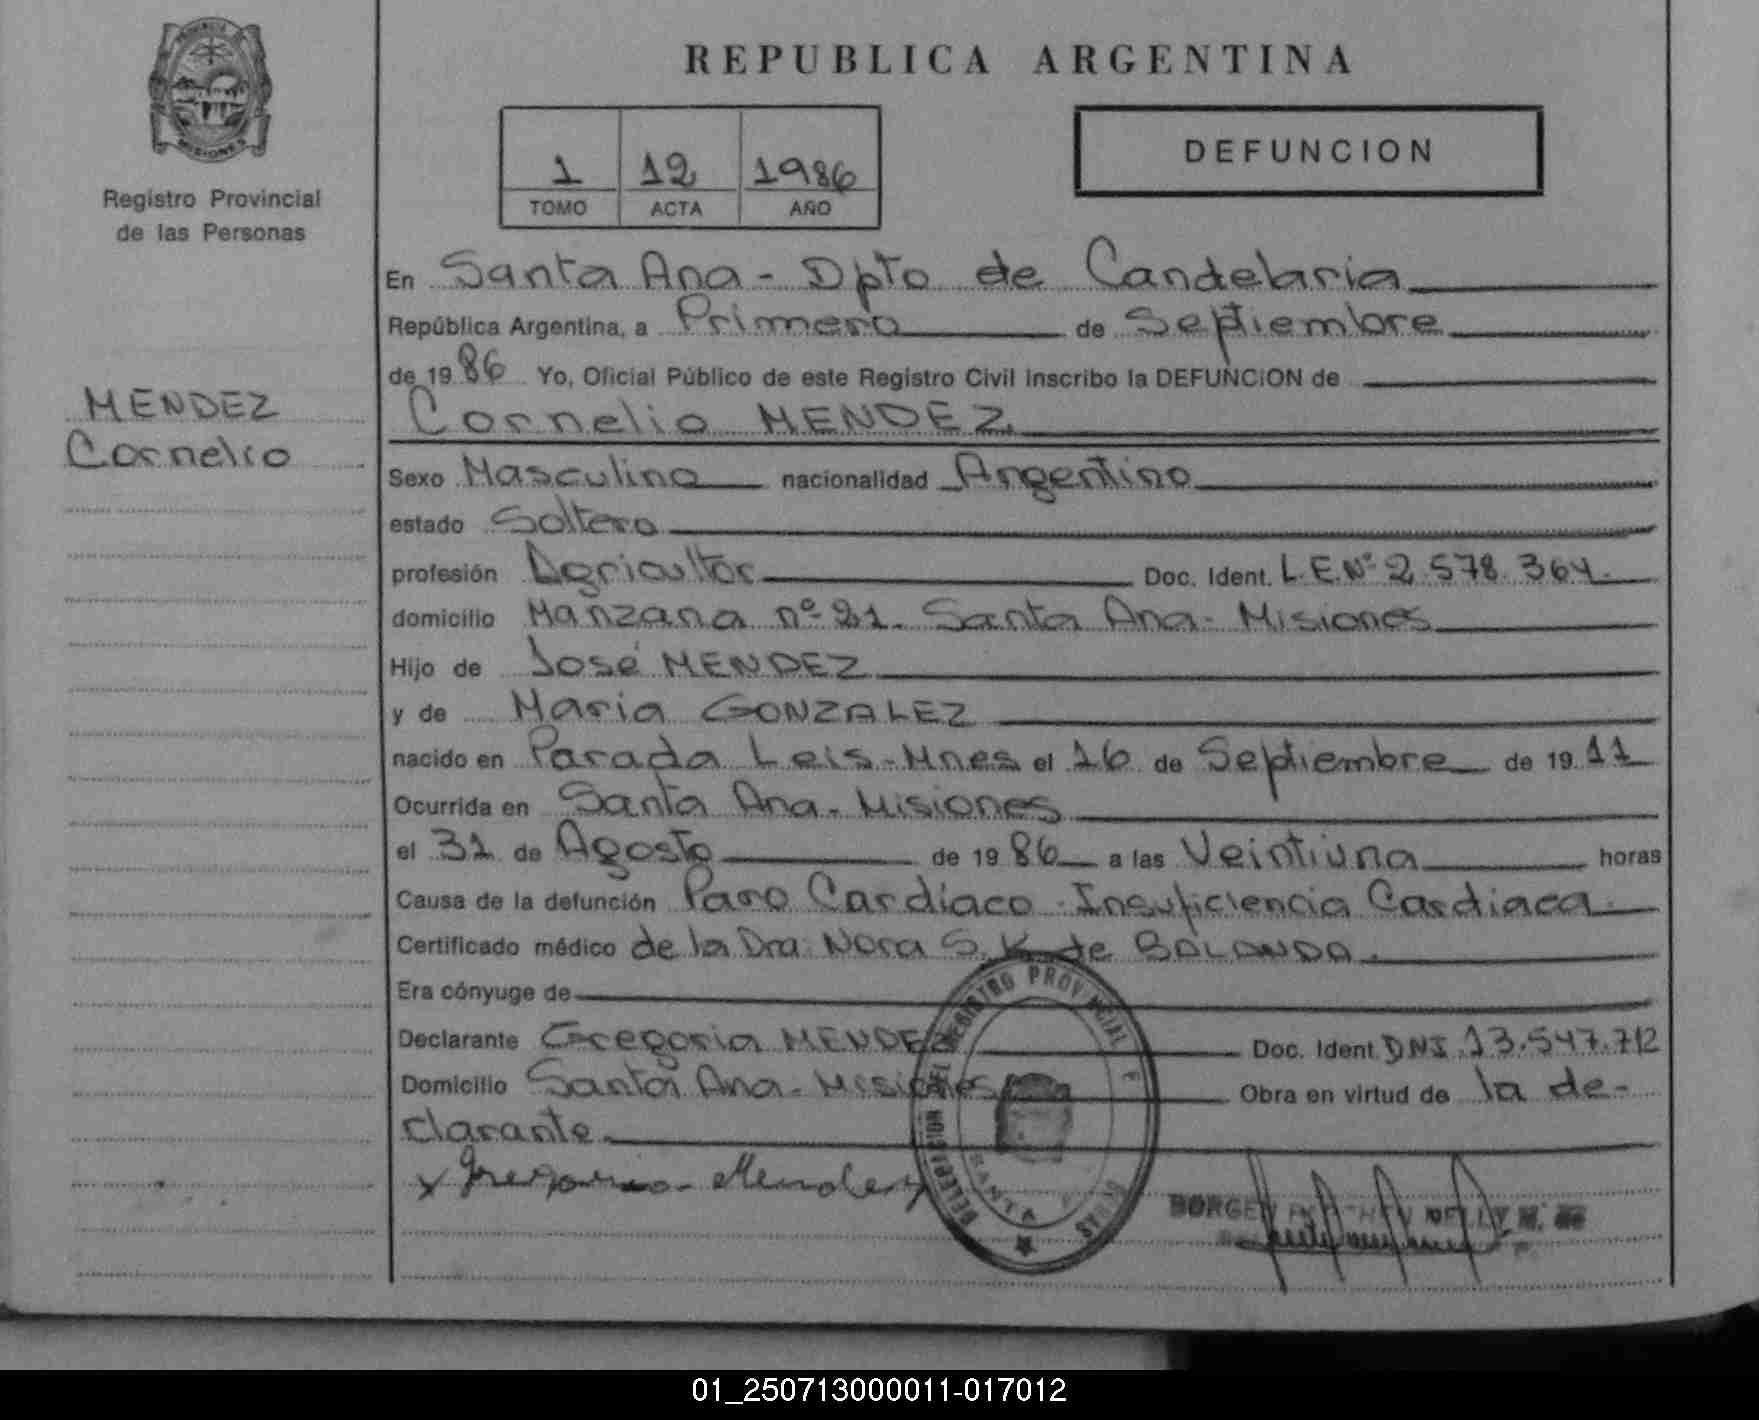 REPUBLICA ARGENTINA
PROVINCIA
MISIONES
Registro Provincial
de las Personas
1 12 1986
TOMO ACTA AÑO
DEFUNCION
MENDEZ
Cornelio
En Santa Ana - Dpto de Candelaria
República Argentina, a Primero de Septiembre
de 1986 Yo, Oficial Público de este Registro Civil inscribo la DEFUNCION de
Cornelio MENDEZ
Sexo Masculino nacionalidad Argentino
estado Soltero
profesión Agricultor Doc. Ident. L.E.Nº 2.578.364.
domicilio Manzana nº 21. Santa Ana - Misiones
Hijo de José MENDEZ
y de Maria GONZALEZ
nacido en Parada Leis - Mnes el 16 de Septiembre de 1911
Ocurrida en Santa Ana - Misiones
el 31 de Agosto de 1986 a las Veintiuna horas
Causa de la defunción Paro Cardíaco - Insuficiencia Cardiaca.
Certificado médico de la Dra. Nora S. K. de BALANDA.
Era cónyuge de
Declarante Gregoria MENDEZ Doc. Ident. DNI. 13.547.712
Domicilio Santa Ana - Misiones Obra en virtud de la de-
clarante
x Gregoria Mendez
DELEGACION DEL REGISTRO PROVINCIAL
SANTA ANA
NELLY
01_250713000011-017012